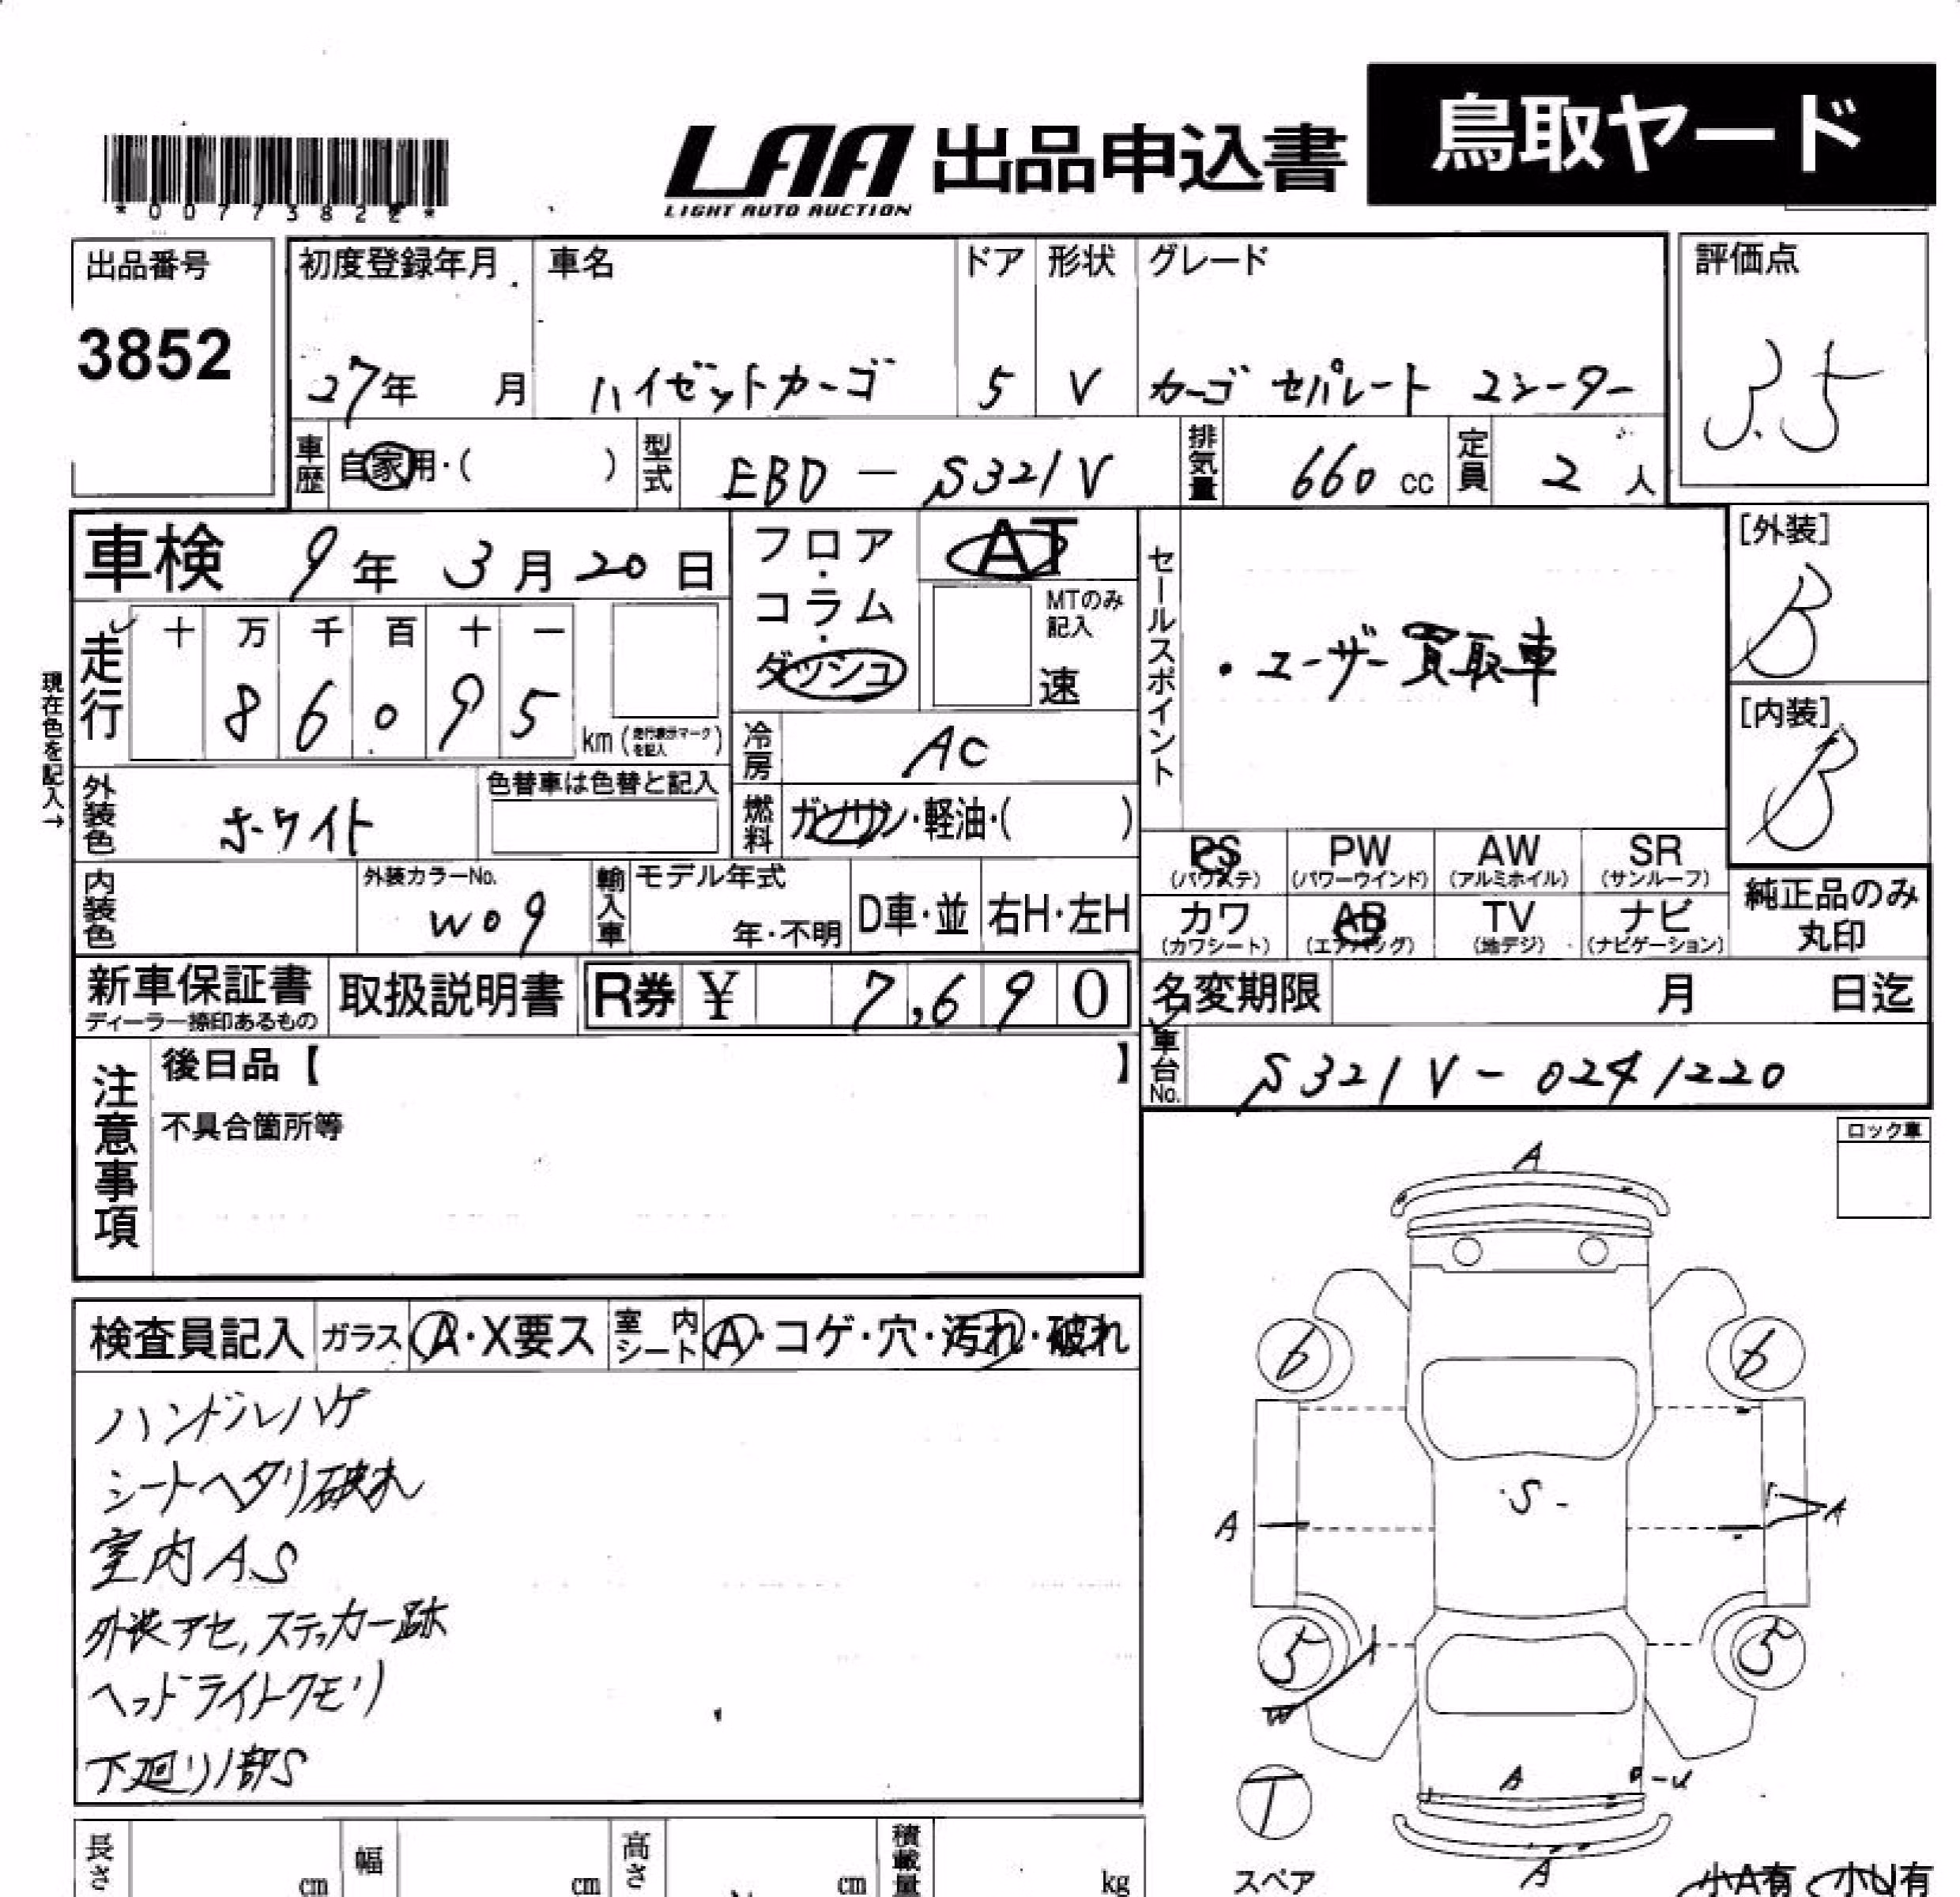 鳥取ヤード
LAA 出品申込書
LIGHT AUTO AUCTION
*00773822*
出品番号
3852
初度登録年月 車名 ドア 形状 グレード
27年 月 ハイゼットカーゴ 5 V カーゴ セパレート 2シーター
評価点
3.5
車歴 自家用・( ) 型式 EBD-S321V 排気量 660 cc 定員 2 人
車検 9年 3月 20日
フロア・コラム・ダッシュ
AT
MTのみ記入
速
セールスポイント
・ユーザー買取車
[外装]
B
[内装]
B
現在色を記入→
走行 十 万 千 百 十 一
8 6 0 9 5
km (走行表示マークを記入)
冷房 AC
外装色 ホワイト
色替車は色替と記入
燃料 ガソリン・軽油・( )
内装色
外装カラーNo.
W09
輸入車 モデル年式
年・不明
D車・並 右H・左H
PS (パワステ) PW (パワーウインド) AW (アルミホイル) SR (サンルーフ)
カワ (カワシート) AB (エアバッグ) TV (地デジ) ナビ (ナビゲーション)
純正品のみ丸印
新車保証書
ディーラー捺印あるもの
取扱説明書 R券 ¥ 7,690
名変期限 月 日迄
車台No. S321V-0241220
注意事項
後日品【 】
不具合箇所等
ロック車
検査員記入 ガラス A・X要ス 室内シート A・コゲ・穴・汚れ・破れ
ハンドルハゲ
シートヘタリ破れ
室内A.S
外装アセ,ステッカー跡
ヘッドライトクモリ
下廻り1部S
A
6 6
S
A A
5 5
A U
T
A
スペア
小A有 小U有
長さ cm 幅 cm 高さ cm 積載量 kg